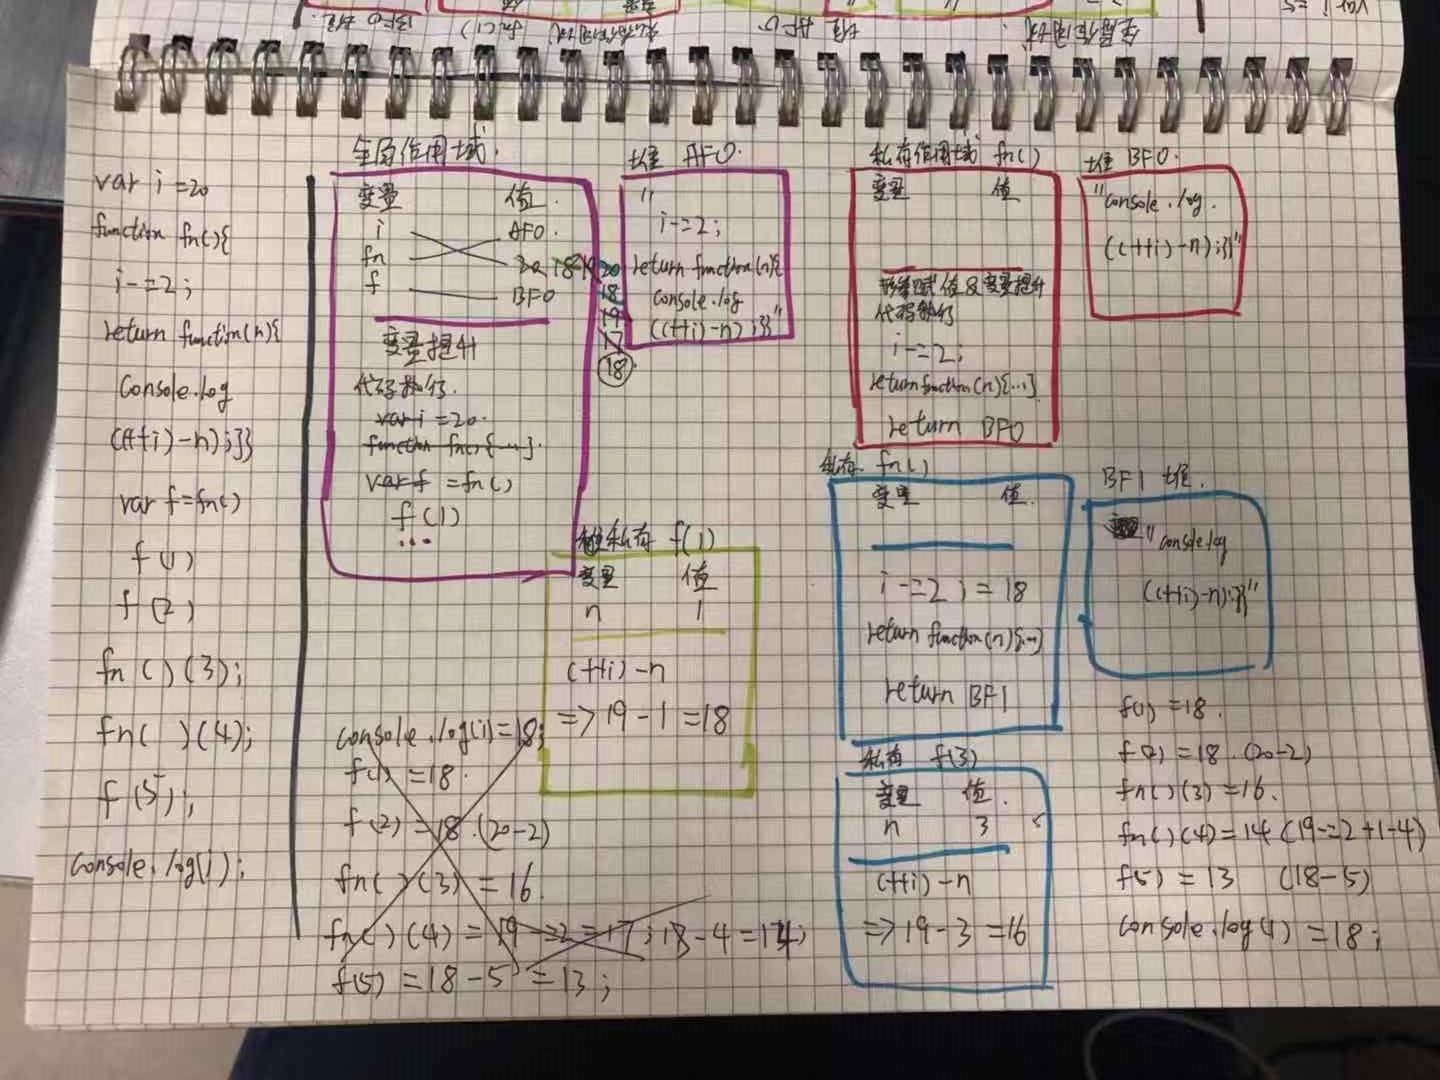 var i =20
function fn(){
i-=2;
return function(n){
console.log
((++i)-n);}}
var f=fn()
f(1)
f(2)
fn()(3);
fn( )(4);
f(5);
console.log(i);
全局作用域.
变量 值.
i AFO.
fn 20 18 19 20
f BFO 18
19
17
18
变量提升
代码执行.
var i =20.
function fn(){...}.
var f =fn()
f(1)
...
堆 AFO.
"
i-=2;
return function(n){
console.log
((++i)-n);}"
私有作用域 fn()
变量 值
形参赋值&变量提升
代码执行
i-=2;
return function(n){...}
return BFO
堆 BFO.
"console.log.
((++i)-n);}"
私有 f(1)
变量 值
n 1
(++i)-n
=>19-1=18
私有. fn()
变量 值.
i-=2 i=18
return function(n){...}
return BF1
BF1 堆.
"console.log
((++i)-n);}"
私有 f(3)
变量 值.
n 3
(++i)-n
=>19-3=16
console.log(i)=18;
f(1) =18.
f(2)=18.(20-2)
fn( )(3)=16.
fn( )(4)=19-=2=17;18-4=14;
f(5)=18-5=13;
f(1)=18.
f(2)=18.(20-2)
fn()(3)=16.
fn()(4)=14(19-=2+1-4)
f(5)=13 (18-5)
console.log(i)=18;